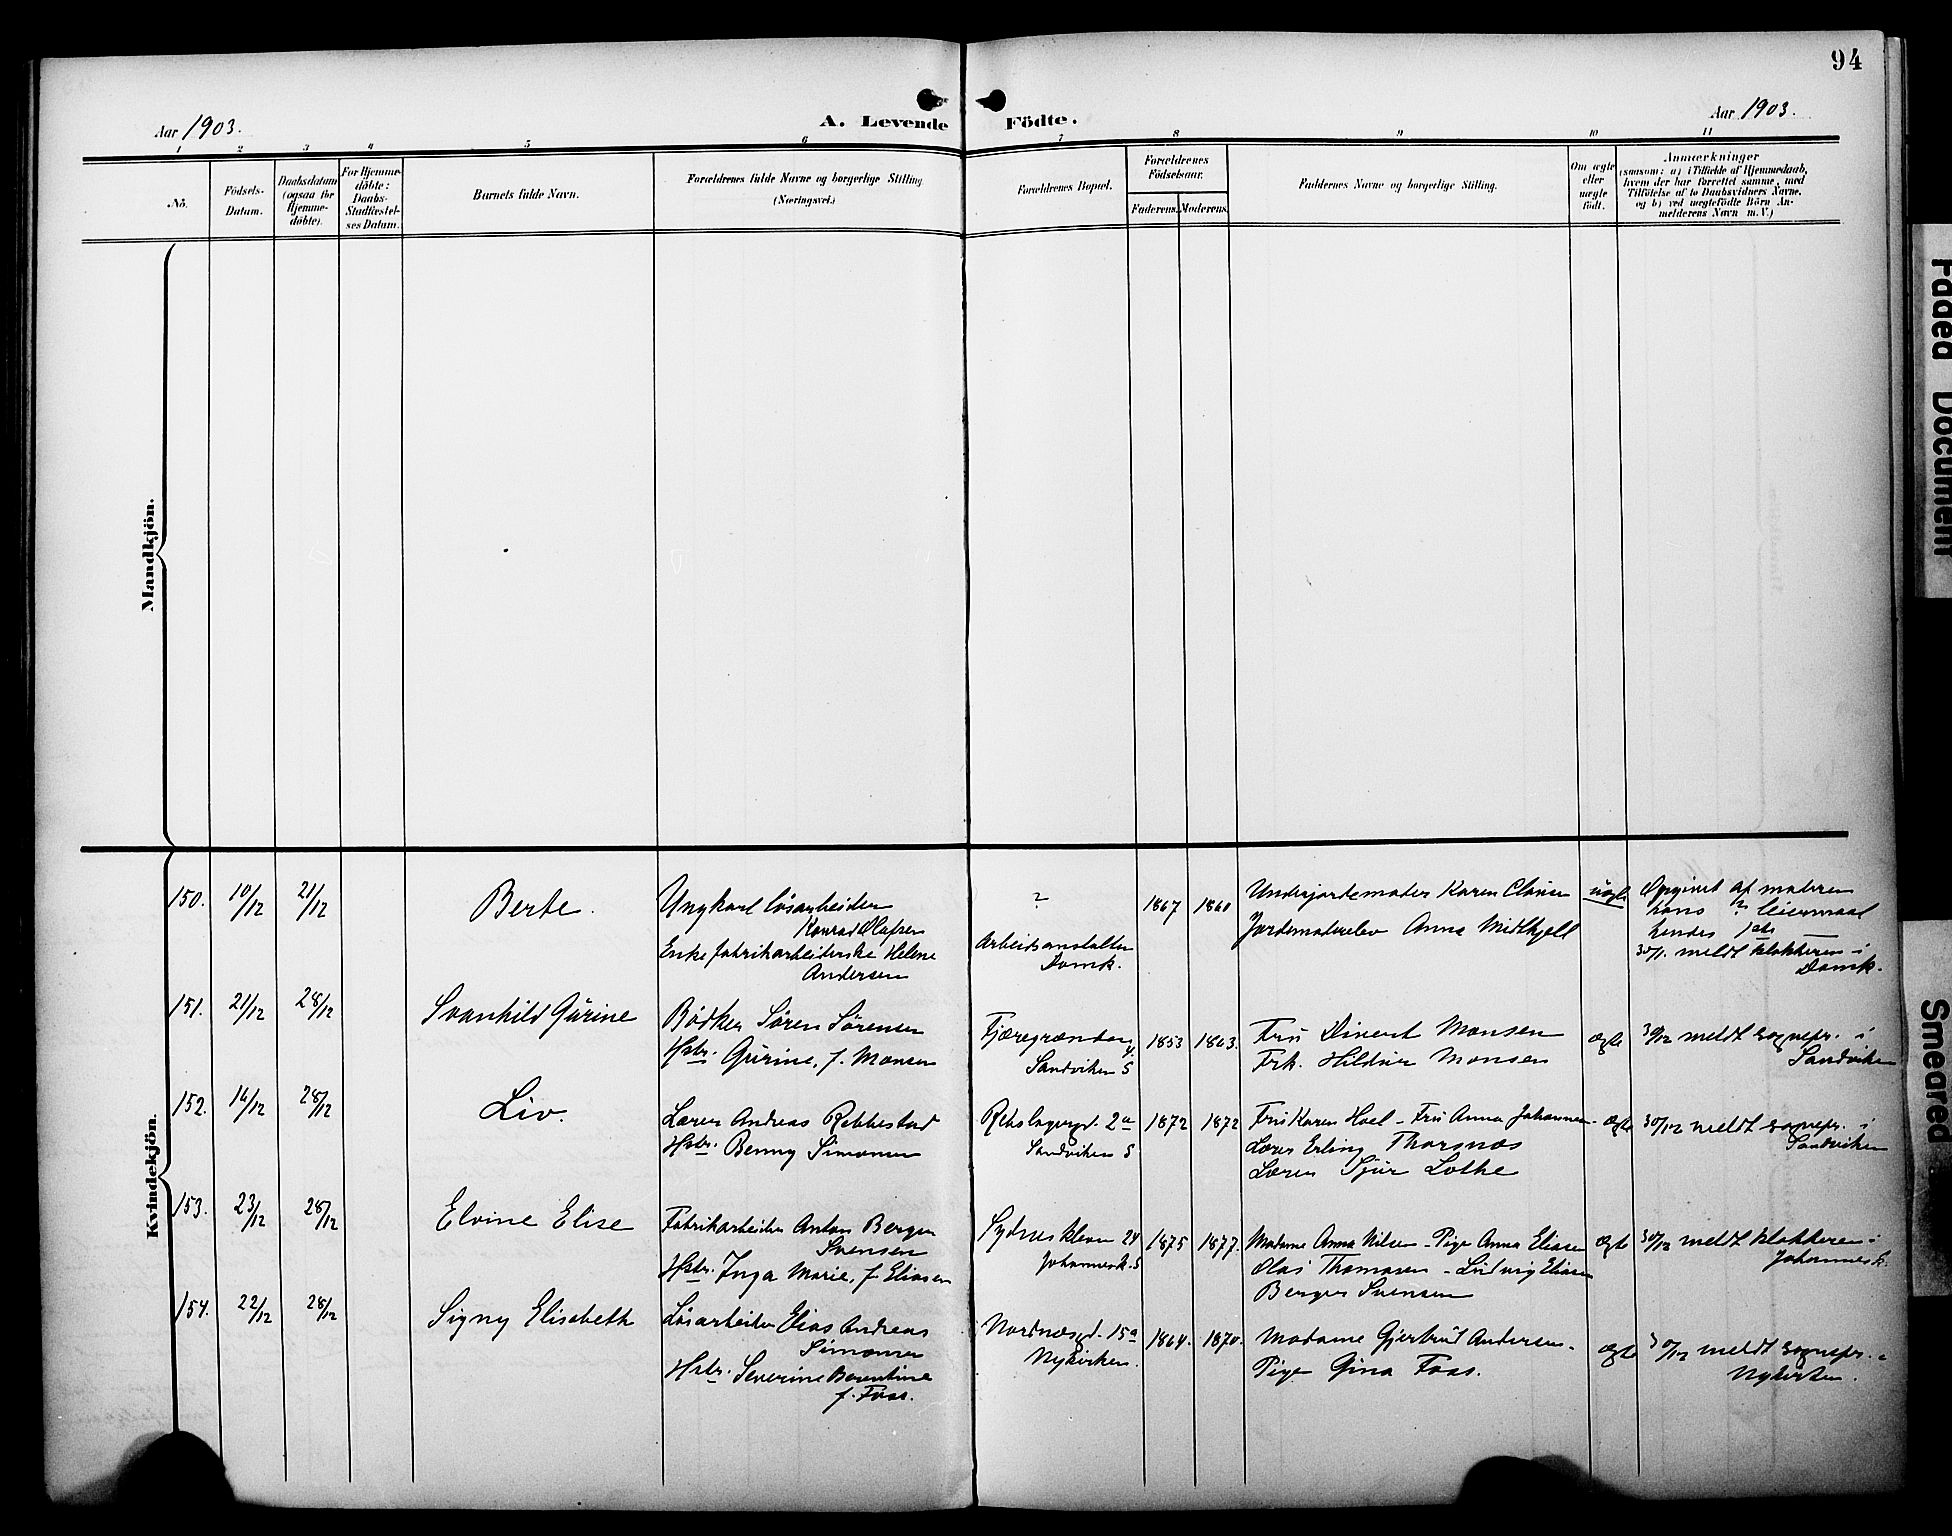 94
Aar 1903.
A. Levende Födte.
Aar 1903.
1 2 3 4 5 6 7 8 9 10 11
No.
Födsels-Datum.
Daabsdatum (ogsaa for Hjemme-døbte).
For Hjemme-døbte: Daabs-Stadfæstel-ses Datum.
Barnets fulde Navn.
Forældrenes fulde Navne og borgerlige Stilling
(Næringsvei.)
Forældrenes Bopæl.
Forældrenes Fødselsaar.
Faderens. Moderens.
Faddernes Navne og borgerlige Stilling.
Om ægte eller uægte født.
Anmærkninger
(saasom: a) i Tilfælde af Hjemmedaab,
hvem der har forrettet samme, med
Tilføielse af to Daabsvidners Navne,
og b) ved uægtefødte Börn An-
melderens Navn m. V.)
Mandkjön.
Kvindekjön.
150. 10/12 21/12 Berte.
Ungkarl løsarbeider
Konrad Olafsen
Enke fabrikarbeiderske Helene
Andersen
?
Arbeidsanstalten
Domk.
1867 1861
Underjordemoder Karen Clausen
Jordemoderelev Anna Midtkjell
uægte
Opgivet af moderen
hans ? leiermaal
hendes 1ste
30/1. meldt klokkeren i
Domk.
151. 21/12 28/12 Svanhild Gürine
Bødker Søren Sørensen
Hstr. Gürine, f. Monsen
Fjæregrænden 4.
Sandviken S
1853 1863.
Fru Divert Monsen
Frk. Hildur Monsen
ægte
30/12 meldt sognepr. i
Sandviken
152. 14/12 28/12 Liv.
Lærer Andreas Rebbestad
Hstr. Benny Simonsen
2a
Sandviken S
1872 1872
Fru Karen Hoel - Fru Anna Johannesen -
Lærer Erling Thorsnæs
Lærer Sjur Lothe
ægte
30/12 meldt sognepr. i
Sandviken
153. 23/12 28/12 Elvine Elise
Fabrikarbeider Anton Berger
Svensen
Hstr. Inga Marie, f. Eliasen
Sydneskleven 24
Johannesk. S
1875 1877.
Madame Anna Nilsen - Pige Anna Eliasen
Olai Thomasen - Ludvig Eliasen
Berger Svensen
ægte
30/12 meldt klokkeren i
Johannesk.
154. 22/12 28/12 Signy Elisabeth
Løsarbeider Elias Andreas
Simonsen
Hstr. Severine Berentine
f. Foss.
Nordnæsgd. 15a
Nykirken.
1864. 1870.
Madame Gjertrud Andersen -
Pige Gina Foss.
ægte
30/12 meldt sognepr. i
Nykirken.
Faded Document
Smeared